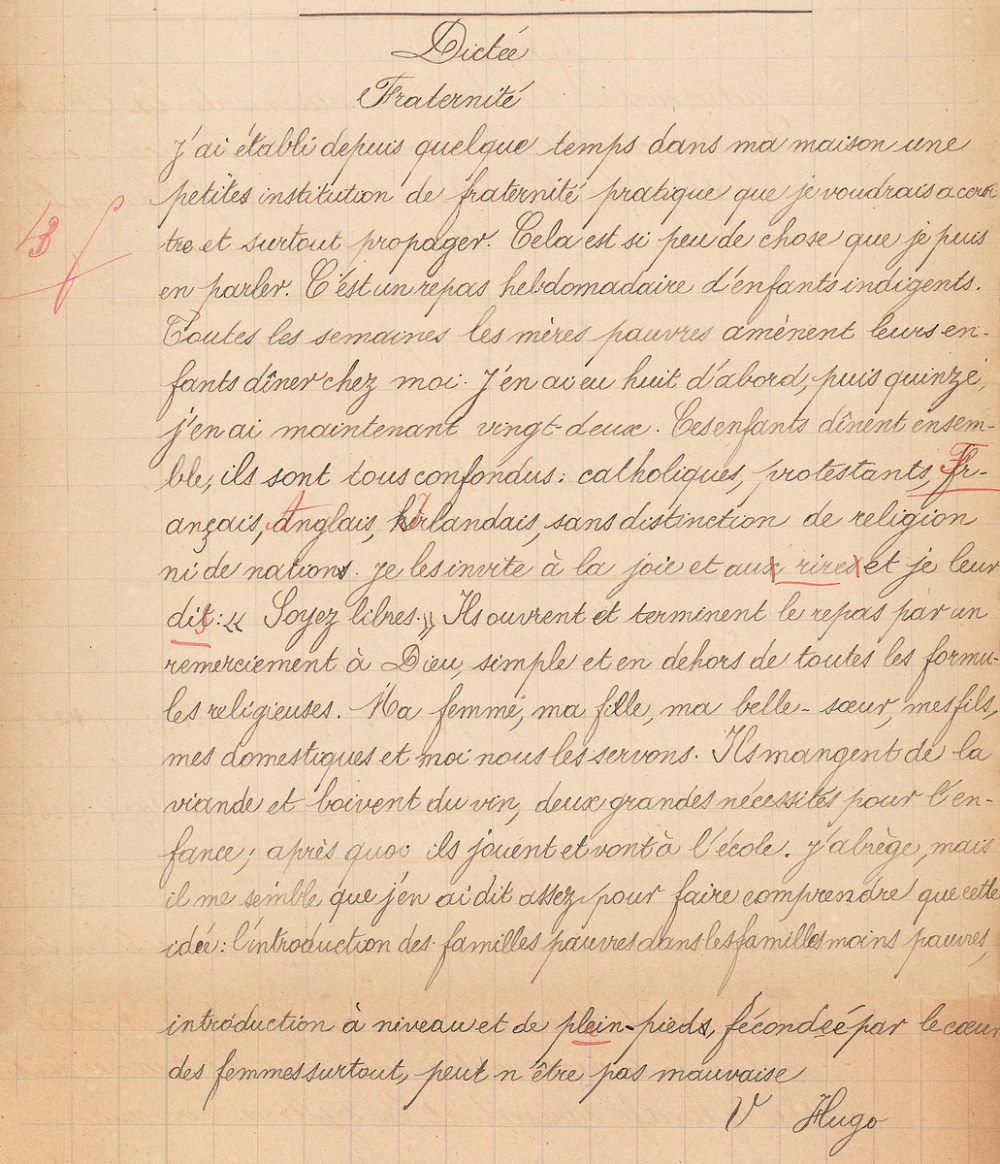 Dictée
Fraternité
J'ai établi depuis quelque temps dans ma maison une
petites institution de fraternité pratique que je voudrais accroî
tre et surtout propager. Cela est si peu de chose que je puis
en parler. C'est un repas hebdomadaire d'enfants indigents.
Toutes les semaines les mères pauvres amènent leurs en-
fants dîner chez moi. J'en ai eu huit d'abord, puis quinze,
j'en ai maintenant vingt-deux. Ces enfants dînent ensem-
ble, ils sont tous confondus: catholiques, protestants, Fr-
ançais, Anglais, Irlandais, sans distinction de religion
ni de nations. Je les invite à la joie et aux rires et je leur
dis: « Soyez libres.» Ils ouvrent et terminent le repas par un
remerciement à Dieu, simple et en dehors de toutes les formu-
les religieuses. Ma femme, ma fille, ma belle-sœur, mes fils,
mes domestiques et moi nous les servons. Ils mangent de la
viande et boivent du vin, deux grandes nécessités pour l'en-
fance; après quoi ils jouent et vont à l'école. J'abrège, mais
il me semble que j'en ai dit assez pour faire comprendre que cette
idée: l'introduction des familles pauvres dans les familles moins pauvres,
introduction à niveau et de plein-pieds, fécondée par le cœur
des femmes surtout, peut n'être pas mauvaise
V Hugo